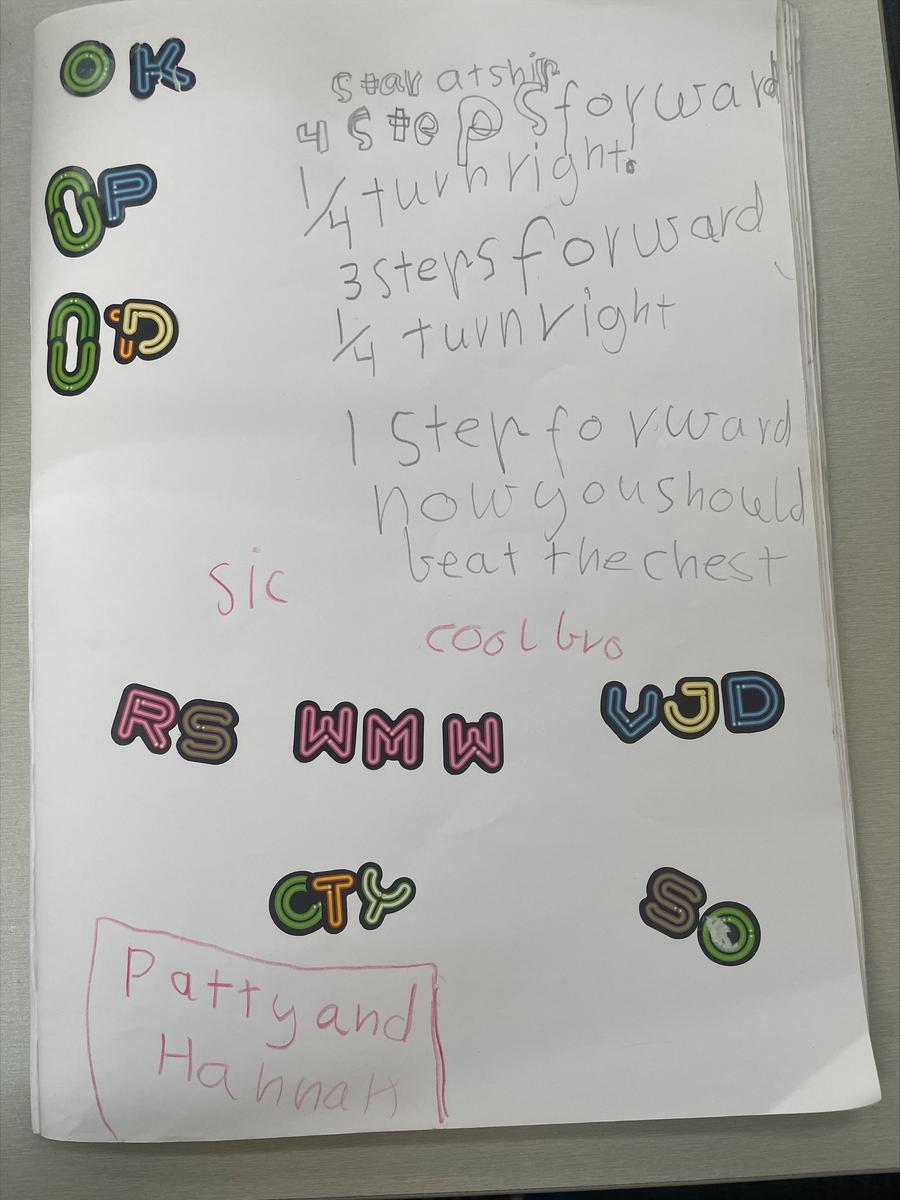 OK
star atship
4 steps forward
OP
1/4 turn right.
3 steps forward
OD
1/4 turn right
1 step forward
now you should
beat the chest
sic
cool bro
RS WMW VJD
CTY SO
Patty and
Hannah